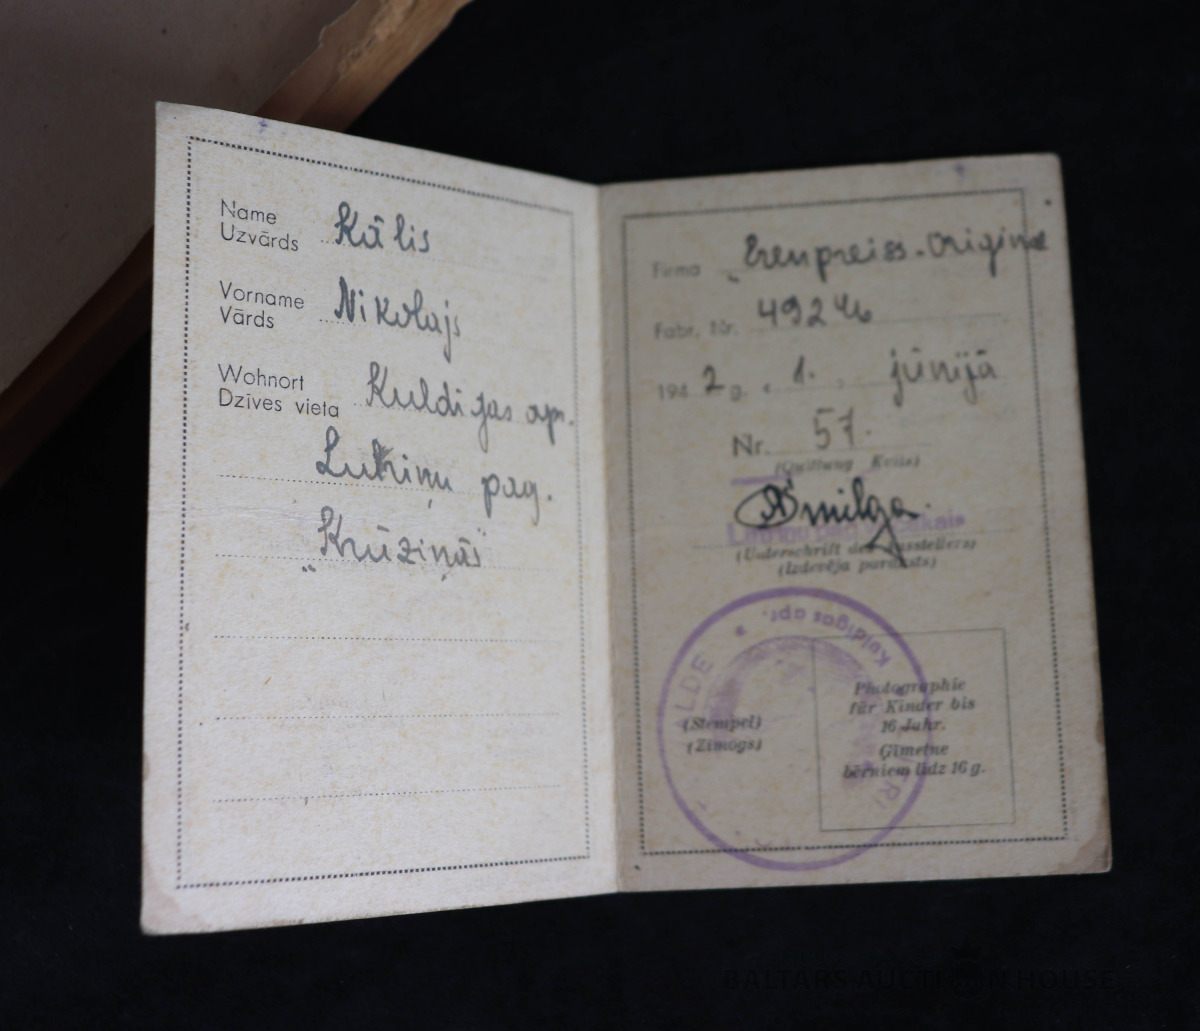 Name
Uzvārds Kālis
Vorname
Vārds Nikolajs
Wohnort
Dzīves vieta Kuldigas apr.
pag.
„Krūziņās"
Firma „Erenpreiss-Original
Fabr. Nr.
1942 g. „1. jūnijā
Nr. 57.
(Quittung Kvīts)
(Unterschrift des Ausstellers)
(Izdevēja paraksts)
Kuldīgas apr.
(Stempel)
(Zīmogs)
Photographie
für Kinder bis
16 Jahr.
Ģīmetne
bērniem līdz 16 g.
BALTARS AUCTION HOUSE